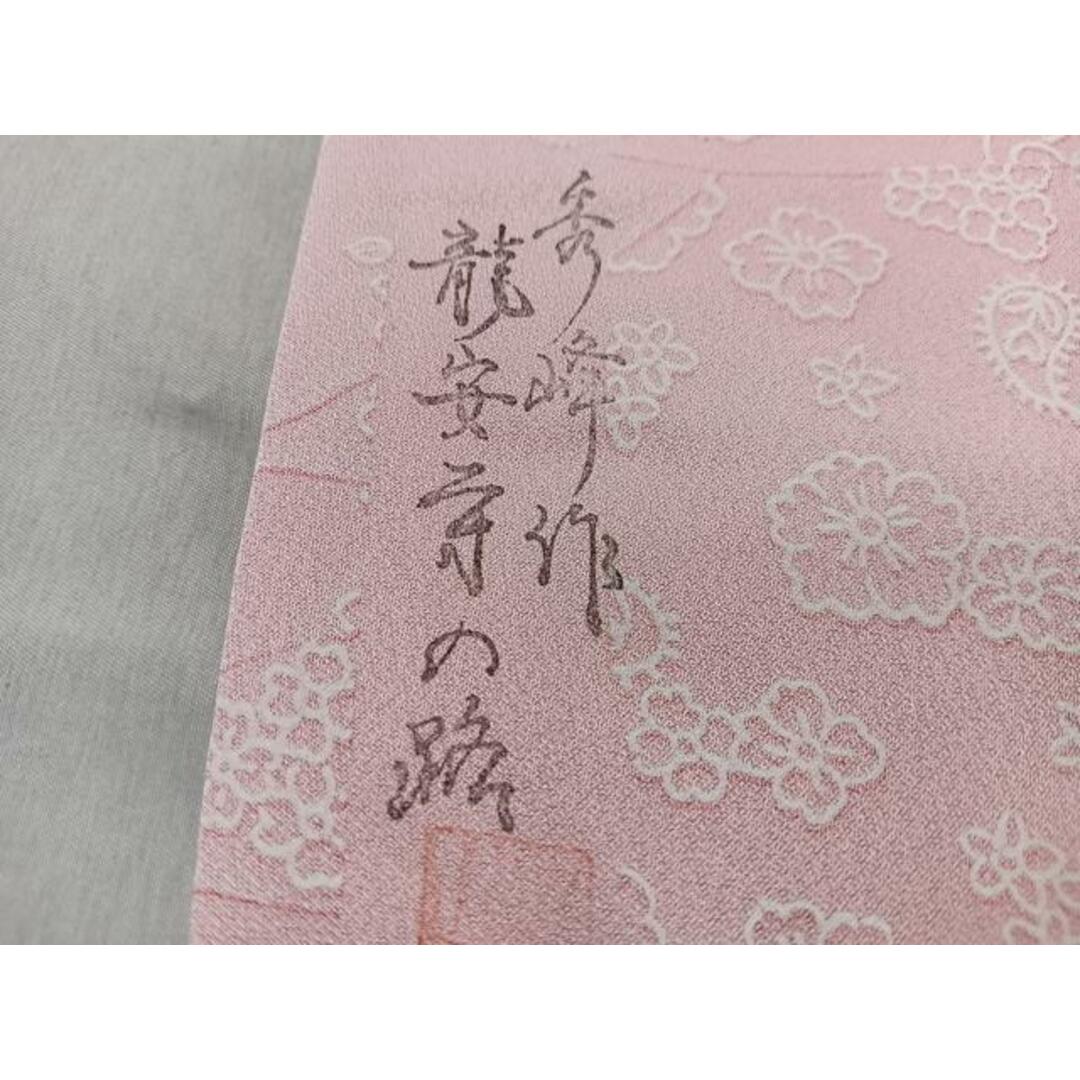 秀峰作
龍安寺の路